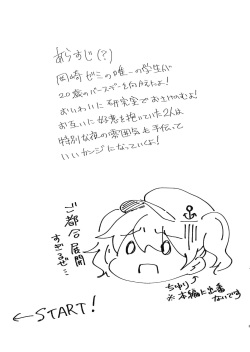 あらすじ(?)
岡崎ゼミの唯一の学生が
20歳のバースデーを向えたよ!
おいわいに研究室でお泊りのむよ!
お互いに好意を抱いていた2人は
特別な夜の雰囲気も手伝って
いいカンジになっていくよ!
ご都合展開
すぎるぜ…
ちゆり↑
※本編に出番
ないです
←START!